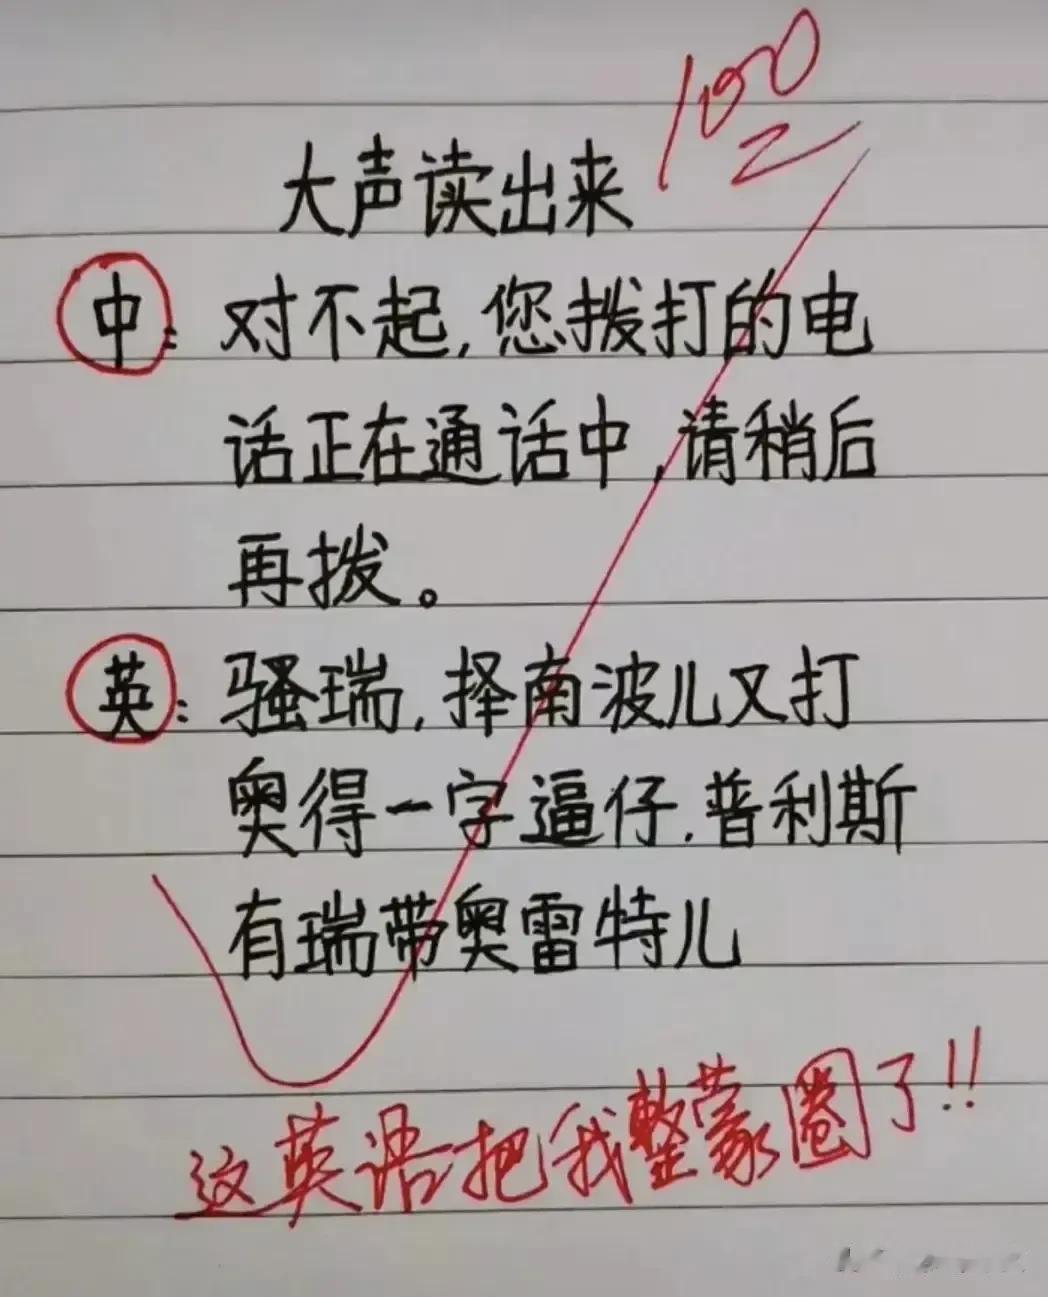 100
大声读出来
中：对不起，您拨打的电
话正在通话中，请稍后
再拨。
英：骚瑞，择南波儿又打
奥得一字逼仔．普利斯
有瑞带奥雷特儿
这英语把我整蒙圈了!!